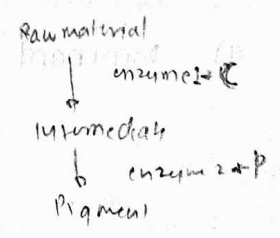 Raw material
enzyme 1 → C
Intermediate
enzyme 2 → P
Pigment